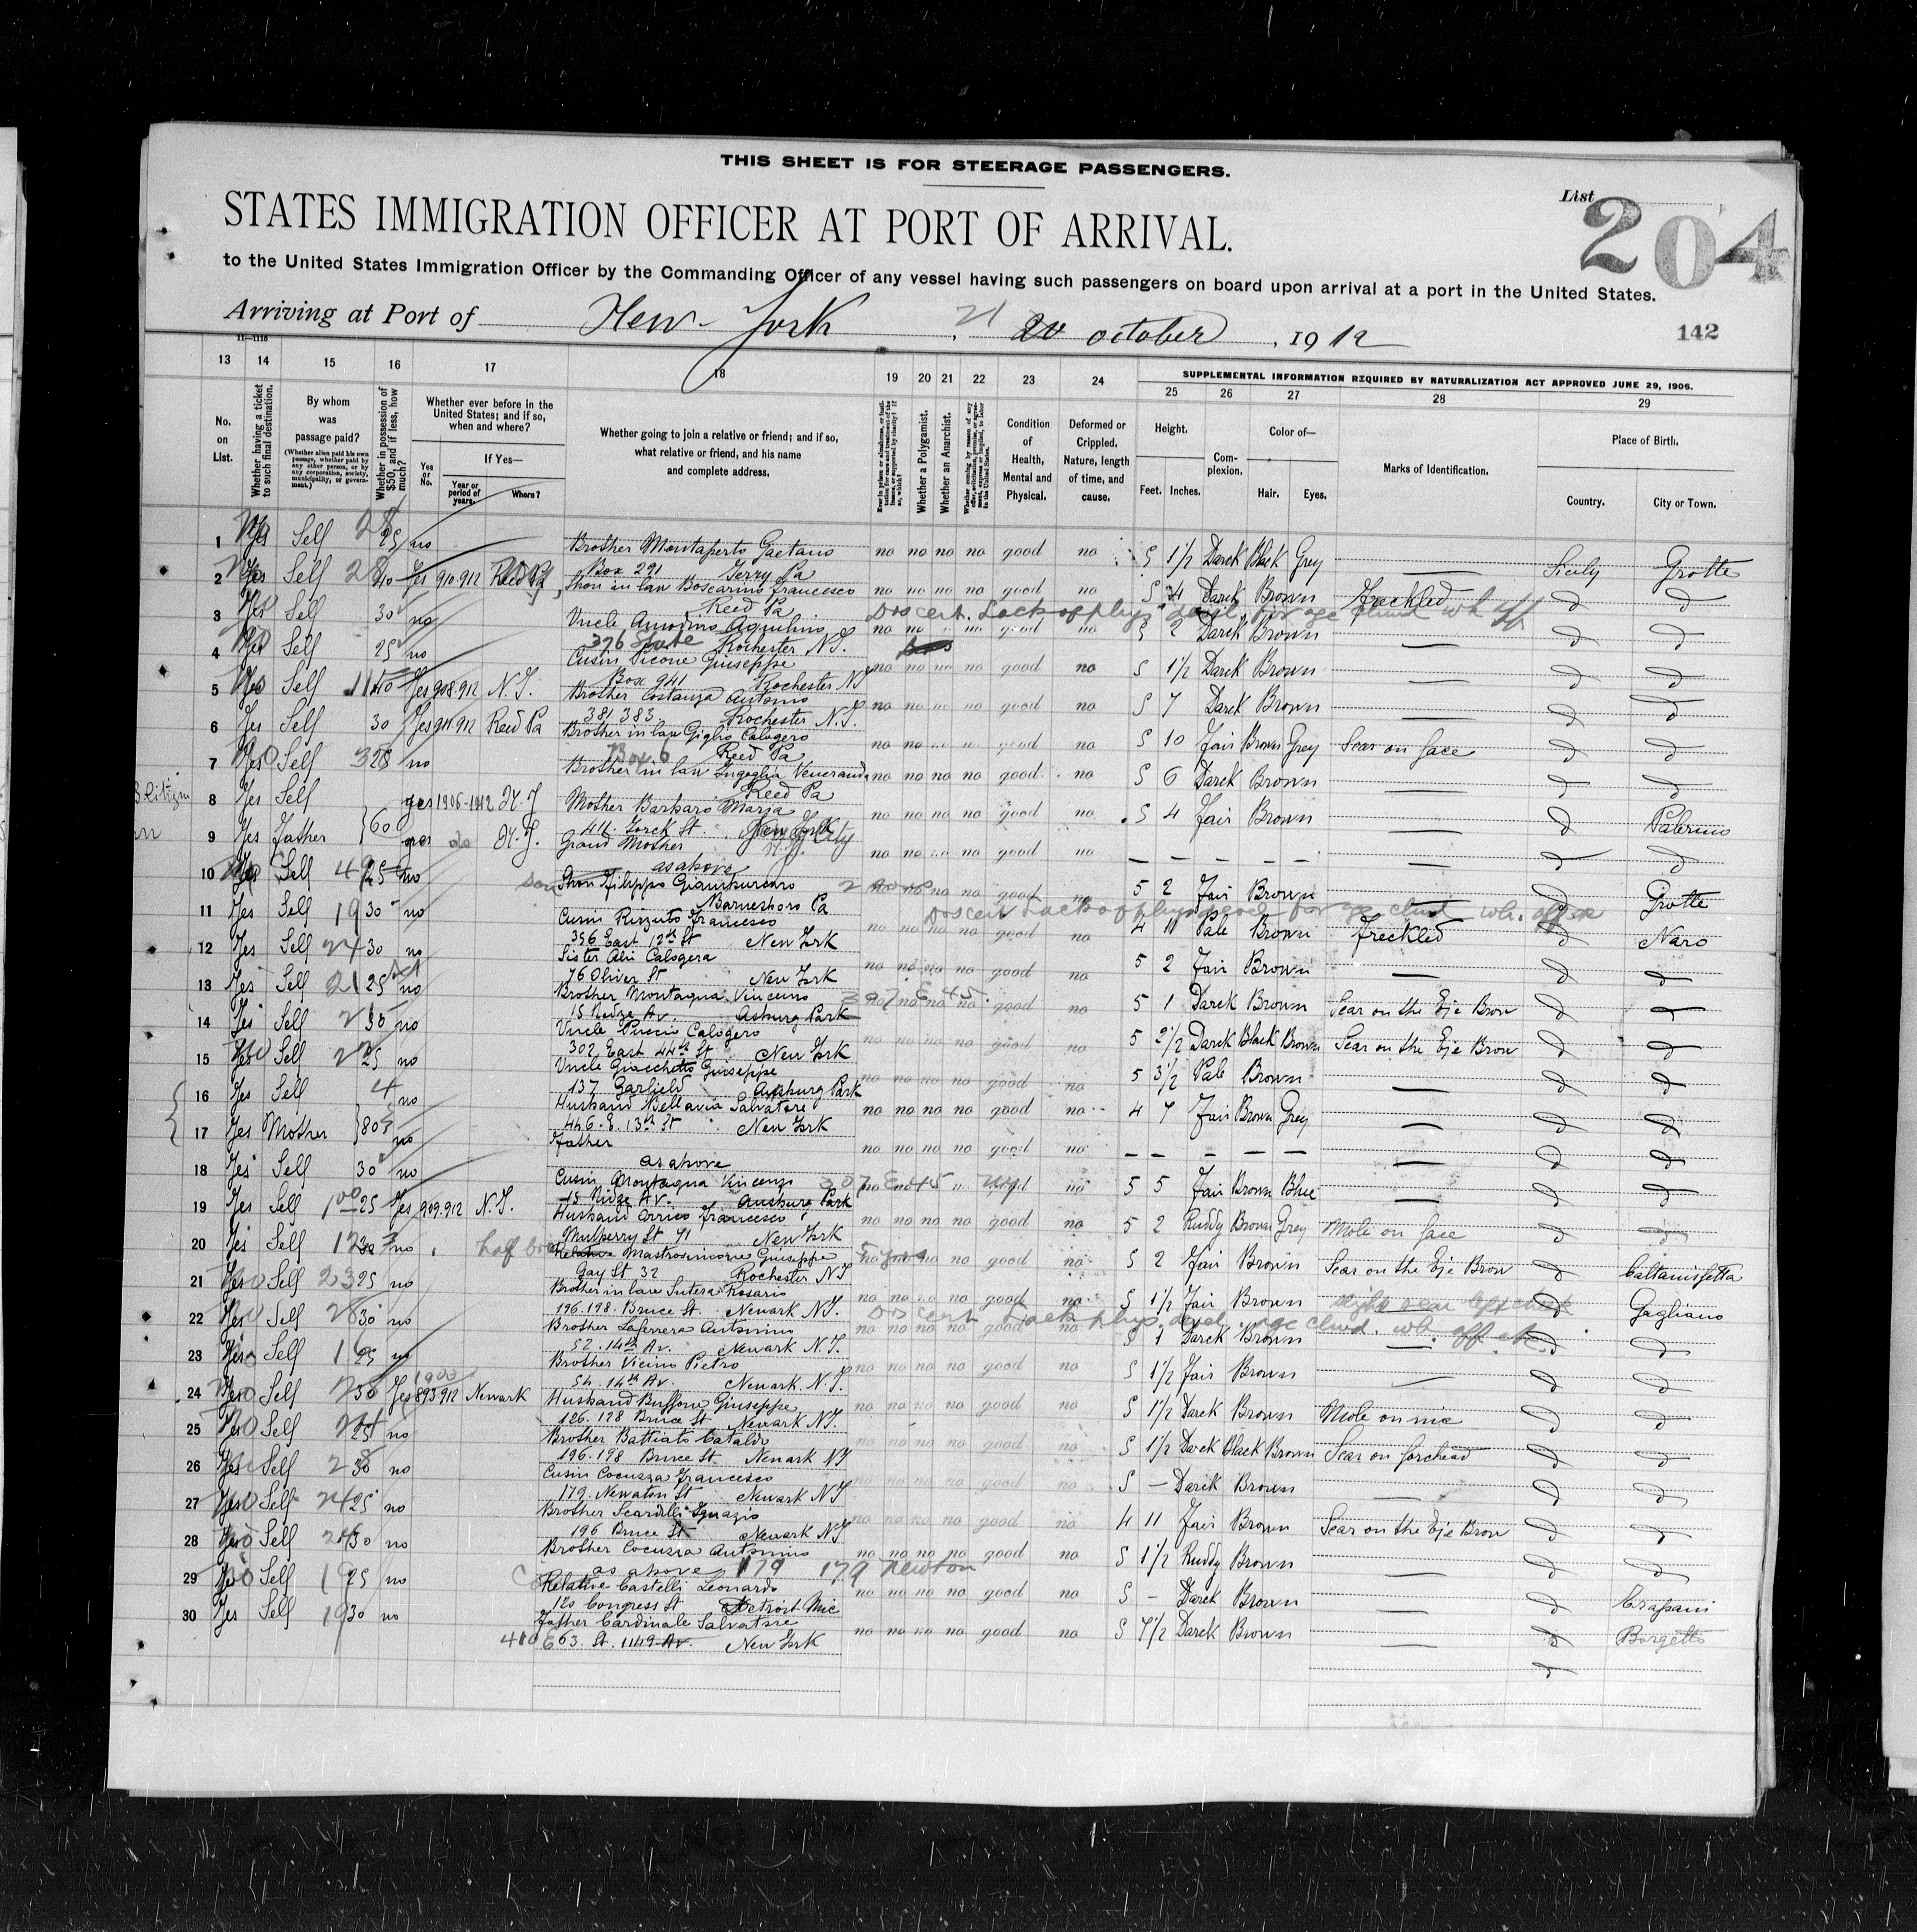 THIS SHEET IS FOR STEERAGE PASSENGERS.
List 204
STATES IMMIGRATION OFFICER AT PORT OF ARRIVAL.
to the United States Immigration Officer by the Commanding Officer of any vessel having such passengers on board upon arrival at a port in the United States.
Arriving at Port of New York, 21 20 october, 1912
142
11—1115
13 14 15 16 17 18 19 20 21 22 23 24 SUPPLEMENTAL INFORMATION REQUIRED BY NATURALIZATION ACT APPROVED JUNE 29, 1906.
25 26 27 28 29
No. on List.
Whether having a ticket to such final destination.
By whom was passage paid?
(Whether alien paid his own passage, whether paid by any other person, or by any corporation, society, municipality, or government.)
Whether in possession of $50, and if less, how much?
Whether ever before in the United States; and if so, when and where?
Yes or No.
If Yes—
Year or period of years.
Where?
Whether going to join a relative or friend; and if so, what relative or friend, and his name and complete address.
Whether a Polygamist.
Whether an Anarchist.
Condition of Health, Mental and Physical.
Deformed or Crippled. Nature, length of time, and cause.
Height.
Feet. Inches.
Complexion.
Color of—
Hair. Eyes.
Marks of Identification.
Place of Birth.
Country. City or Town.
1 Yes Self 25 no Brother Montaperto Gaetano no no no no good no 5 1½ Darck Black Grey — Sicily Grotte
Box 291 Terry Pa
2 Yes Self 40 Yes 910.912 Reed Pa Shon in law Boscarino francesco no no no no good no 5 4 Darck Brown Freckled d d
Reed Pa
3 Yes Self 30 no Uncle Antonino Aquilino no no no no good no 5 2 Darck Brown — d d
376 State Rochester N.J.
4 Yes Self 25 no Cusin Picone Giuseppe no no no no good no 5 1½ Darck Brown — d d
Box 941 Rochester NJ
5 Yes Self 40 Yes 908.912 N.J. Brother Costanza Antonio no no no no good no 5 7 Darck Brown — d d
381 383 Rochester N.J.
6 Yes Self 30 Yes 911.912 Reed Pa Brother in law Giglio Calogero no no no no good no 5 10 Fair Brown Grey Scar on face d d
Box 6 Reed Pa
7 Yes Self 28 no Brother in law Ingoglia Veneranda no no no no good no 5 6 Darck Brown — d d
Reed Pa
8 Yes Self yes 1906-1912 N.J. Mother Barbaro Maria no no no no good no 5 4 Fair Brown — d Palermo
411 Yorck St.
9 Yes Father 60 yes do N.J. Grand Mother no no no no good no — — — — — d d
as above
10 Yes Self 25 no Shon Filippo Giamburcaro no no no no good no 5 2 Fair Brown — d Grotte
Barnesboro Pa
11 Yes Self 30 no Cusin Rizzuto Francesco no no no no good no 4 11 Pale Brown Freckled d Naro
356 East 12th St New York
12 Yes Self 30 no Sister Alù Calogera no no no no good no 5 2 Fair Brown — d d
76 Oliver St New York
13 Yes Self 25 no Brother Montaqna Vincenso 307 E 45 no no no no good no 5 1 Darck Brown Scar on the Eje Brow d d
15 Ridze Av. Asburg Park
14 Yes Self 30 no Uncle Puccio Calogero no no no no good no 5 2½ Darck Black Brown Scar on the Eje Brow d d
302 East 44th St New York
15 Yes Self 25 no Uncle Giacchetto Giuseppe no no no no good no 5 3½ Pale Brown — d d
137 Garfield Asburg Park
16 Yes Self no Husband Bellavia Salvatore no no no no good no 4 7 Fair Brown Grey — d d
446. E. 13th St New York
17 Yes Mother 80 no Father no no no no good no — — — — — d d
as above
18 Yes Self 30 no Cusin Montaqna Vincenzo 307 E 45 good no 5 5 Fair Brown Blue — d d
15 Ridze Av. Ausburg Park
19 Yes Self 25 Yes 909.912 N.J. Husband Orrico Francesco no no no no good no 5 2 Ruddy Brown Grey Mole on face d d
Mulberry St 71 New York
20 Yes Self no half bro Relative Mastrosimone Giuseppe no no no no good no 5 2 Fair Brown Scar on the Eje Brow d Caltanissetta
Gay St 32 Rochester NJ
21 Yes Self 25 no Brother in law Sutera Rosario no no no no good no 5 1½ Fair Brown d Gagliano
196.198. Bruce St. Newark N.J.
22 Yes Self 30 no Brother Laferrera Antonino no no no no good no 5 1 Darck Brown — d d
52. 14th Av. Newark N.J.
23 Yes Self 25 no Brother Vicino Pietro no no no no good no 5 1½ Fair Brown — d d
54. 14th Av. Newark. N.J.
24 Yes Self 30 Yes 893.912 Newark Husband Buffone Giuseppe no no no no good no 5 1½ Darck Brown Mole on d d
126.128 Bruce St Newark N.J.
25 Yes Self 25 no Brother Battiato Cataldo no no no no good no 5 1½ Darck Black Brown Scar on forehead d d
196.198 Bruce St. Newark NJ
26 Yes Self 30 no Cusin Cocuzza Francesco no no no no good no 5 — Darck Brown — d d
179. Newaton St Newark NJ
27 Yes Self 25 no Brother Scardilli Ignazio no no no no good no 4 11 Fair Brown Scar on the Eje Brow d d
196 Bruce St Newark NJ
28 Yes Self 30 no Brother Cocuzza Antonino no no no no good no 5 1½ Ruddy Brown — d d
as above 179 179 Newton
29 Yes Self 25 no Relative Castelli Leonardo no no no no good no 5 — Darck Brown — d Trapani
120 Congress St Detroit Mic
30 Yes Self 30 no Father Cardinale Salvatore no no no no good no 5 7½ Darck Brown — d Borgetto
410 E 63. St. 1149 Av. New York